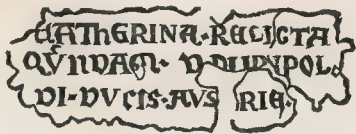 KATHERINA · RELICTA
QVNDAM · D · DI LVPOL
DI · DVCIS · AVS RIE ·